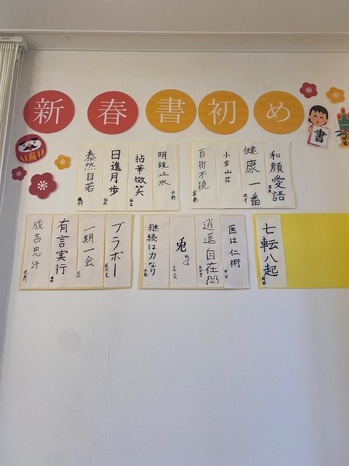 新春書初め
書
和顔愛語
健康一番
小倉山荘
百術不撓
明鏡止水
拈華微笑
日進月歩
泰然自若
七転八起
医は仁術
逍遥自在
兎
継続は力なり
ブラボー
一期一会
有言実行
成吉思汗